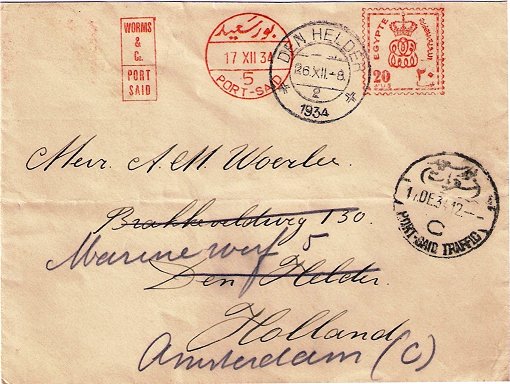 WORMS
&
Co.
PORT
SAID
بورسعيد
17 XII 34
5
PORT-SAID
DEN HELDER
26.XII.-8.
2
1934
EGYPTE
20
٢٠
Mevr. A. M. Woerlee.
130.
Marinewerf 5
Den Helder
Holland
Amsterdam (C)
بورسعيد
17 DE 34 12
C
PORT-SAID TRAFFIC